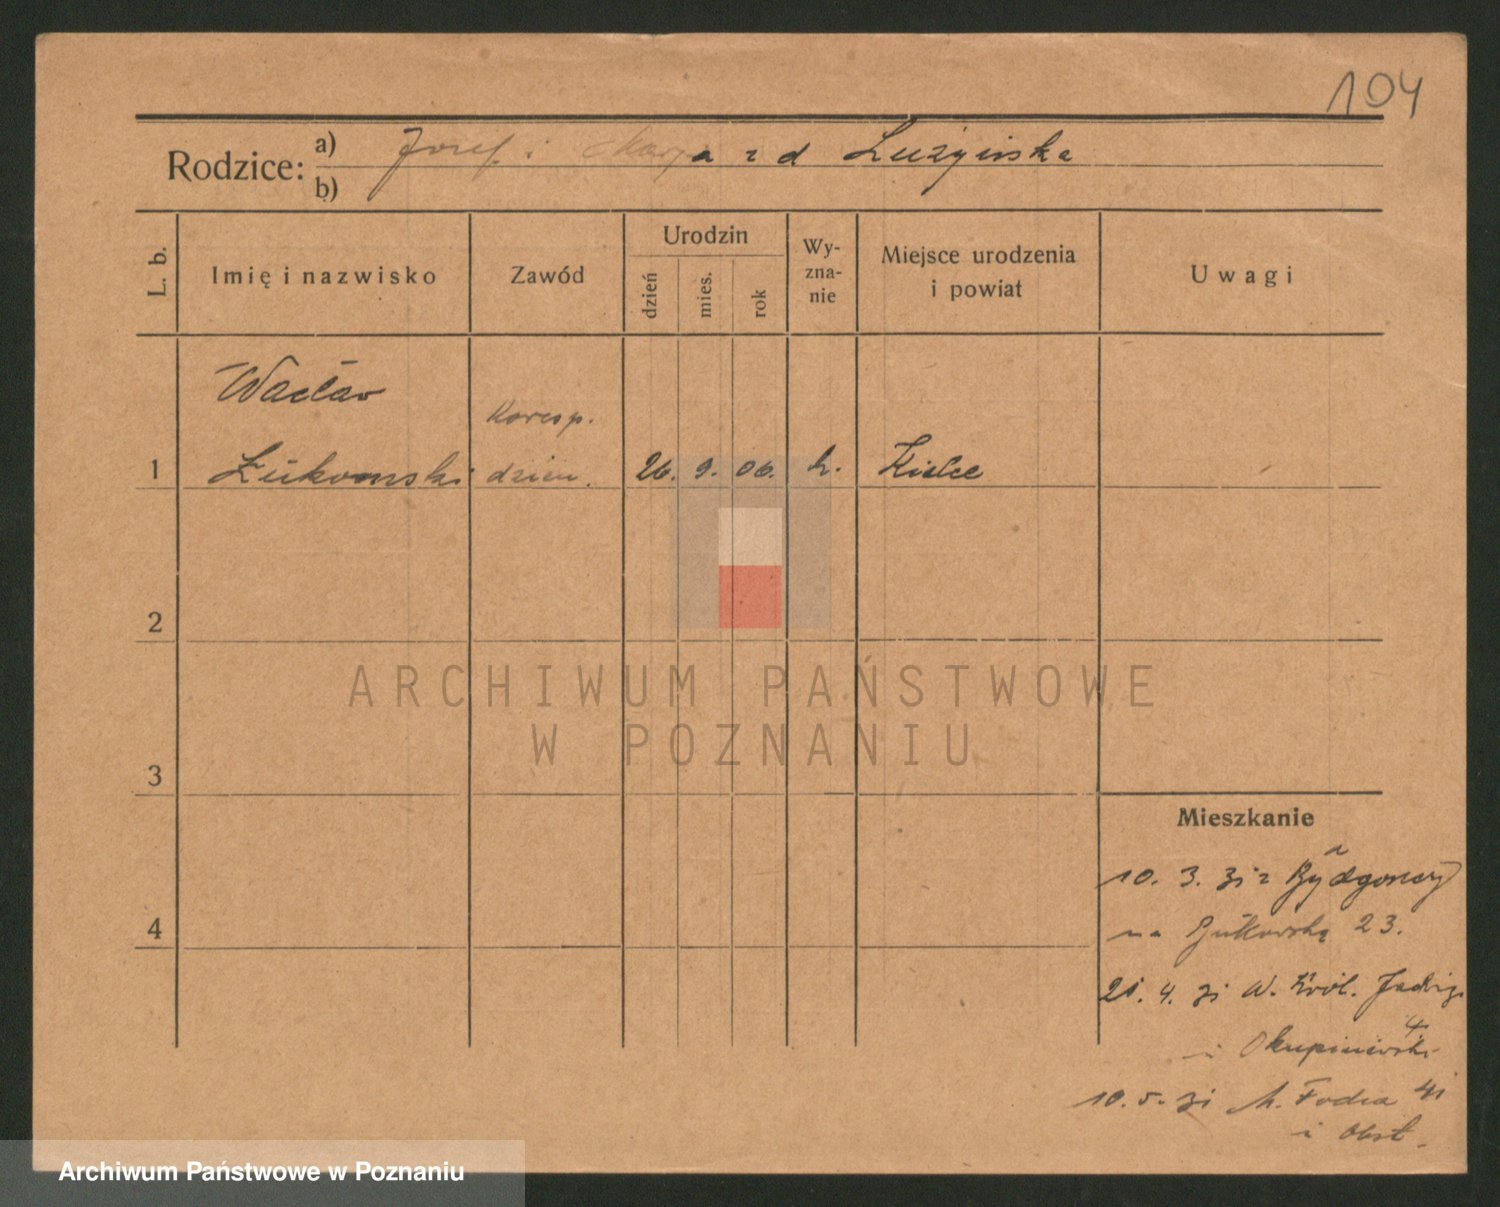 104
Rodzice: a) Józef i Marja z d Łużyńska
b)
L. b.
Imię i nazwisko
Zawód
Urodzin
dzień
mies.
rok
Wy-
zna-
nie
Miejsce urodzenia
i powiat
Uwagi
Wacław
Koresp.
1 Łukomski dzien. 26. 9. 06. k. Kielce
2
ARCHIWUM PAŃSTWOWE
W POZNANIU
3
Mieszkanie
10. 3. 31 z Bydgoszczy
4
na Bukowską 23.
21. 4. 31 W. Król. Jadwigi
4
i
10. 5. 31 M. Focha 41
i
Archiwum Państwowe w Poznaniu